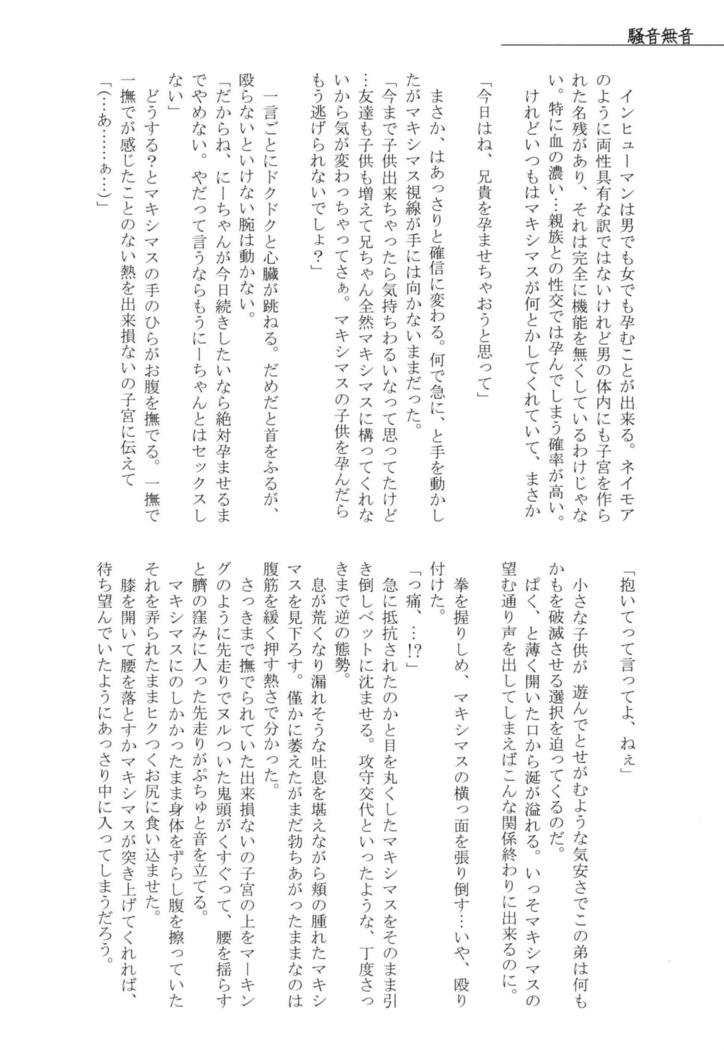 騒音無音
インヒューマンは男でも女でも孕むことが出来る。ネイモア
のように両性具有な訳ではないけれど男の体内にも子宮を作ら
れた名残があり、それは完全に機能を無くしているわけじゃな
い。特に血の濃い…親族との性交では孕んでしまう確率が高い。
けれどいつもはマキシマスが何とかしてくれていて、まさか
「今日はね、兄貴を孕ませちゃおうと思って」
まさか、はあっさりと確信に変わる。何で急に、と手を動かし
たがマキシマス視線が手には向かないままだった。
「今まで子供出来ちゃったら気持ちわるいなって思ってたけど
…友達も子供も増えて兄ちゃん全然マキシマスに構ってくれな
いから気が変わっちゃってさぁ。マキシマスの子供を孕んだら
もう逃げられないでしょ?」
一言ごとにドクドクと心臓が跳ねる。だめだと首をふるが、
殴らないといけない腕は動かない。
「だからね、にーちゃんが今日続きしたいなら絶対孕ませるま
でやめない。やだって言うならもうにーちゃんとはセックスし
ない」
どうする?とマキシマスの手のひらがお腹を撫でる。一撫で
一撫でが感じたことのない熱を出来損ないの子宮に伝えて
「(…あ……ぁ…)」
「抱いてって言ってよ、ねぇ」
小さな子供が　遊んでとせがむような気安さでこの弟は何も
かもを破滅させる選択を迫ってくるのだ。
ぱく、と薄く開いた口から涎が溢れる。いっそマキシマスの
望む通り声を出してしまえばこんな関係終わりに出来るのに。
拳を握りしめ、マキシマスの横っ面を張り倒す…いや、殴り
付けた。
「っ痛、…!?」
急に抵抗されたのかと目を丸くしたマキシマスをそのまま引
き倒しベットに沈ませる。攻守交代といったような、丁度さっ
きまで逆の態勢。
息が荒くなり漏れそうな吐息を堪えながら頬の腫れたマキシ
マスを見下ろす。僅かに萎えたがまだ勃ちあがったままなのは
腹筋を緩く押す熱さで分かった。
さっきまで撫でられていた出来損ないの子宮の上をマーキン
グのように先走りでヌルついた亀頭がくすぐって、腰を揺らす
と臍の窪みに入った先走りがぷちゅと音を立てる。
マキシマスにのしかかったまま身体をずらし腹を擦っていた
それを弄られたままヒクつくお尻に食い込ませた。
膝を開いて腰を落とすかマキシマスが突き上げてくれれば、
待ち望んでいたようにあっさり中に入ってしまうだろう。